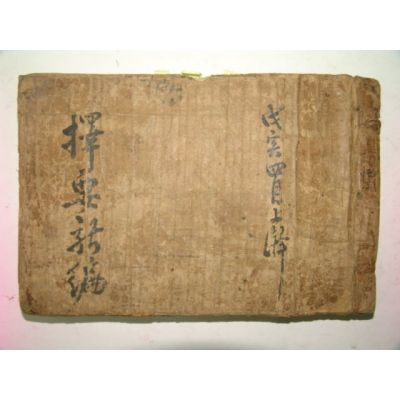 戊寅四月上澣
擇要新編